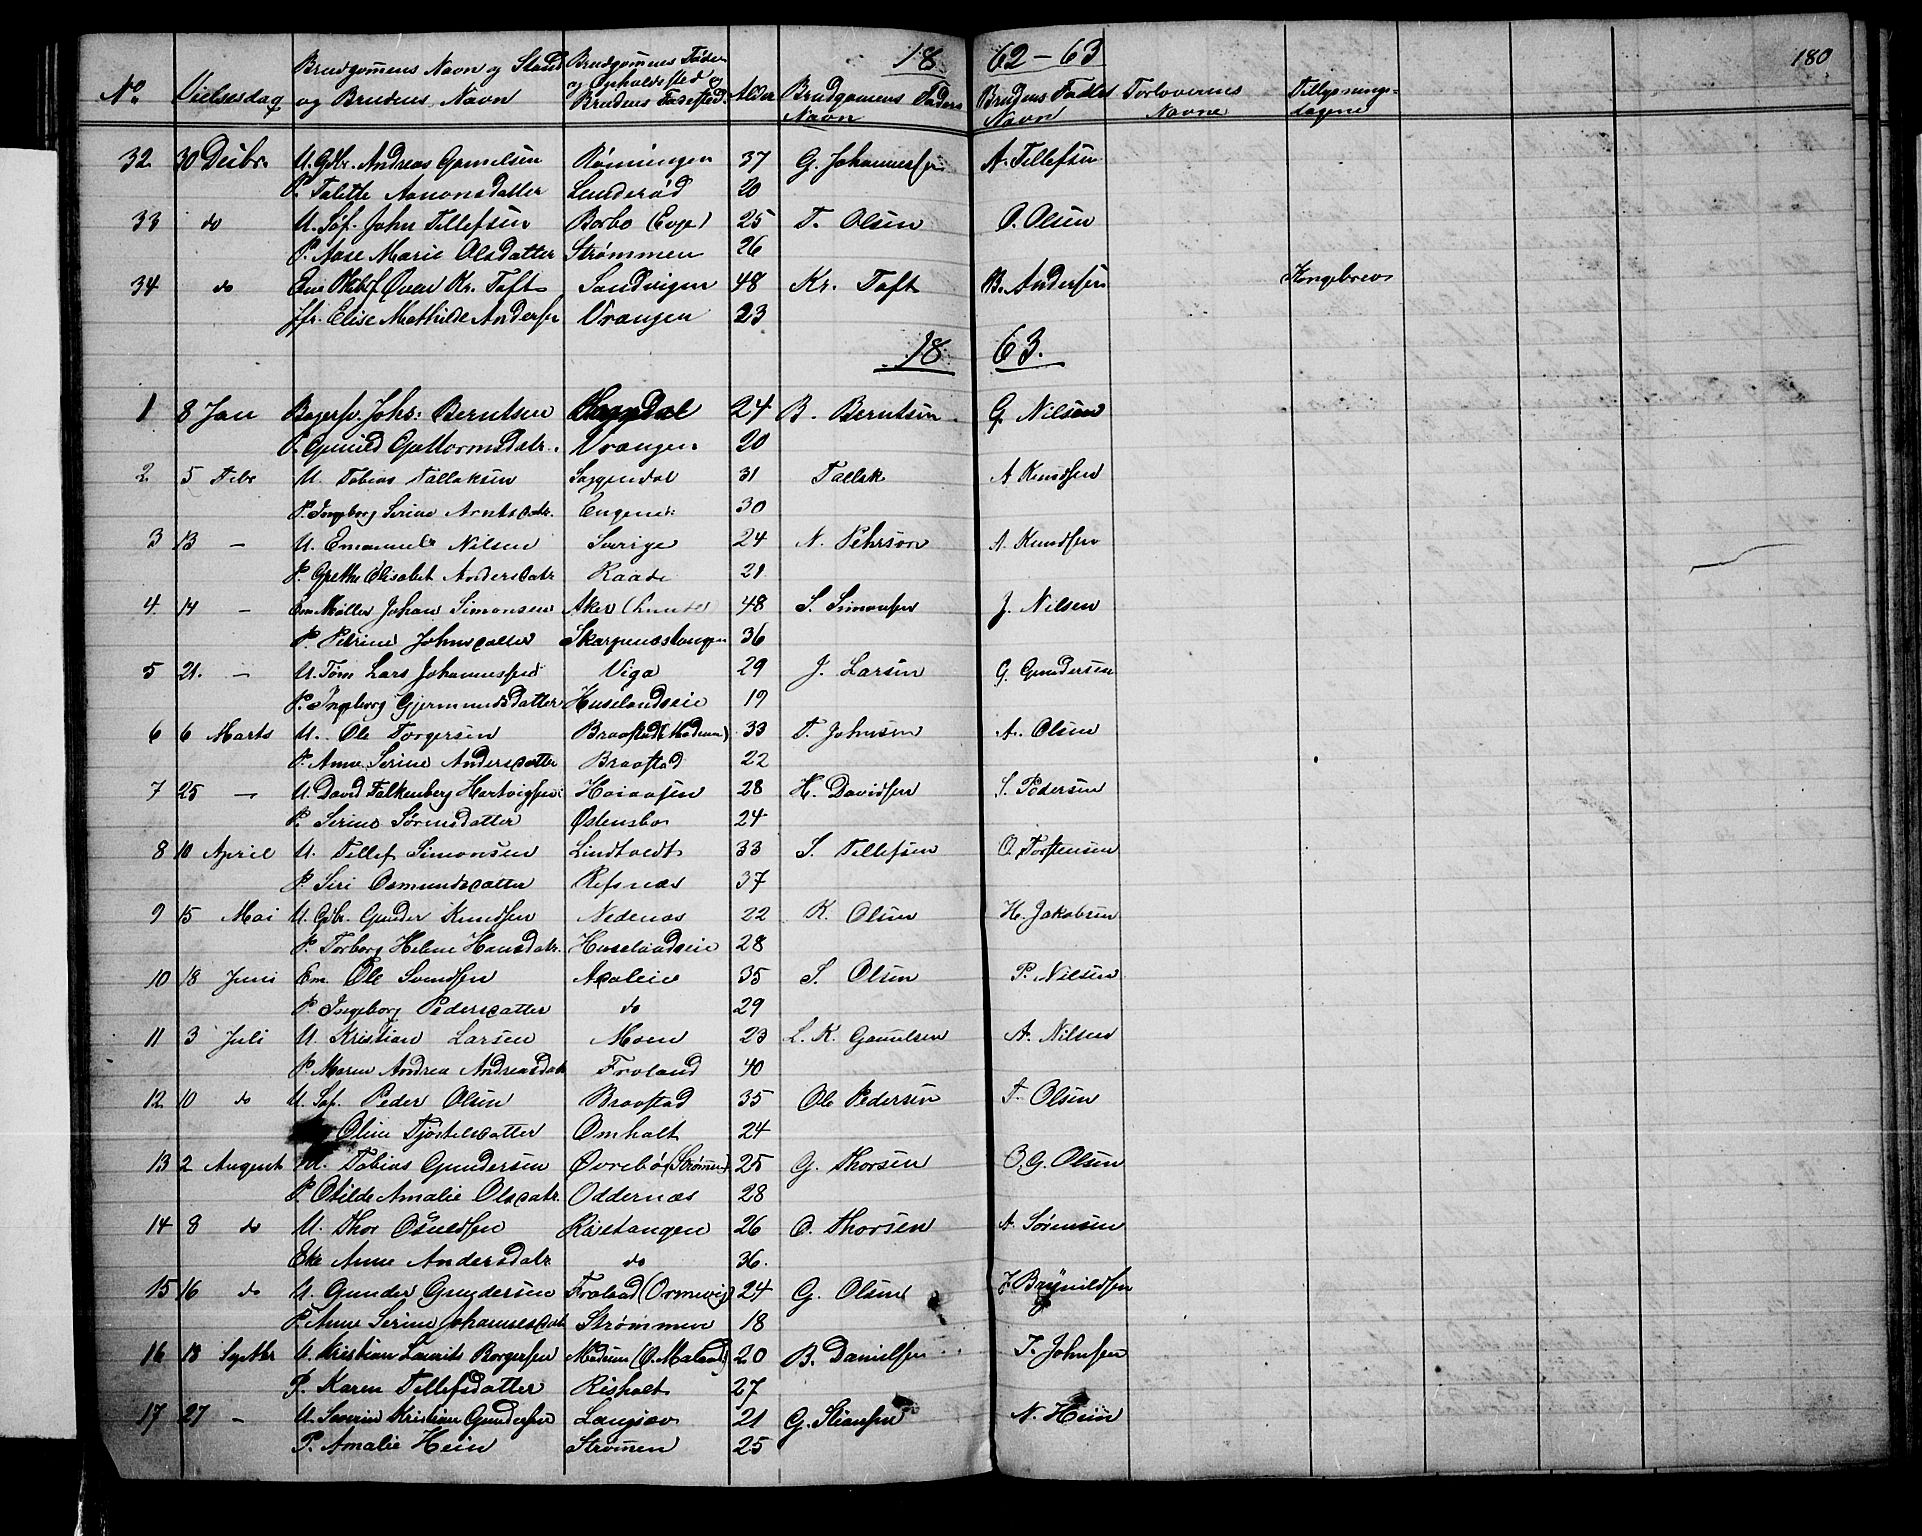 18 62-63 180
No. Vielsesdag Brudgomens Navn og Stand og Brudens Navn Brudgomens Føde- og Opholdssted og Brudens Fødested. Alder Brudgomens Faders Navn Brudens Faders Navn Forlovernes Navne Tillysnings- dagene
32 30 Decbr. U. Gbr. Andreas Gamelsen Rønningen 37 G. Johannessen A. Tellefsen
P. Talette Aanonsdatter Lunderød 20
33 do U. Søf. John Tellefsen Borbo (Evje) 25 T. Olsen O. Olsen
P. Aase Marie Olsdatter Strømmen 26
34 do Kr. Toft Sandvigen 48 Kr. Toft B. Andersen Kongebrev
jfr. Elise Mathilde Andersen Vrangen 23
18 63.
1 8 Jan Johs: Berntsen 24 B. Berntsen G. Nilsen
P. Gunild Guttormsdatr. Vrangen 20
2 5 Febr U. Tobias Tallaksen Saggendal 31 Tallak A Knudsen
P. Ingeborg Serine Arntsdatr. Engene 30
3 13 - U. Emanuel Nilsen Sverige 24 N. Pehrson A. Knudsen
P. Grethe Elisabet Andersdatr Raade 21
4 14 - Em Møller Johan Simonsen Aker (Lunde) 48 S. Simonsen J. Nilsen
P. Petrine Johnsdatter Skarpnestangen 36
5 21. - U. Tøm Lars Johannessen Viga 29 J. Larsen G. Gundersen
P. Ingeborg Gjermundsdatter Huselandseie 19
6 6 Marts U. Ole Torgersen Braastad 33 T. Johnsen A. Olsen
P. Anne Serine Andersdatter Braastad 22
7 25 - U. David Falkenberg Hartvigsen Haiaasen 28 H. Davidsen S. Pedersen
P. Serine Sørensdatter Østensbo 24
8 10 April U. Tellef Simonsen Lindtvedt 33 S. Tellefsen O. Torstensen
P. Siri Osmundsdatter Refsnæs 37
9 15 Mai U. Gbr. Gunder Knudsen Nedenæs 22 K. Olsen H. Jakobsen
P. Torborg Helene Hansdatr. Huselandseie 28
10 18 Juni Em. Ole Svendsen 35 S. Olsen P. Nilsen
P. Ingeborg Pedersdatter do 29
11 3 Juli U. Kristian Larsen Moen 23 L. K. Gamelsen A. Nilsen
P. Maren Andrea Andreasdatr Froland 40
12 10 do U. Søf. Peder Olsen Braastad 35 Ole Pedersen T. Olsen
Oline Tjøstelsdatter Omholt 24
13 2 August U. Tobias Gundersen Øvrebø (Strømen) 25 G. Thorsen O. G. Olsen
P. Otilde Amalie Olsdatr. Oddernæs 28
14 8 do U. Thor Osuldsen Revetangen 26 O. Thorsen A. Sørensen
Eke Anne Andersdatr do 36.
15 16 do U. Gunder Gundersen Froland (Ormevig) 24 G. Olsen J. Brynildsen
P. Anne Serine Johannesdat Strømmen 18
16 18 Septbr U. Kristian Laurits Borgersen 20 B. Danielsen T. Johnsen
P. Karen Tellefsdatter Risholt 27
17 27 - U. Severin Kristian Gundersen Langsæv 21 G. Stiansen N. Hein
P. Amalie Hein Strømen 25